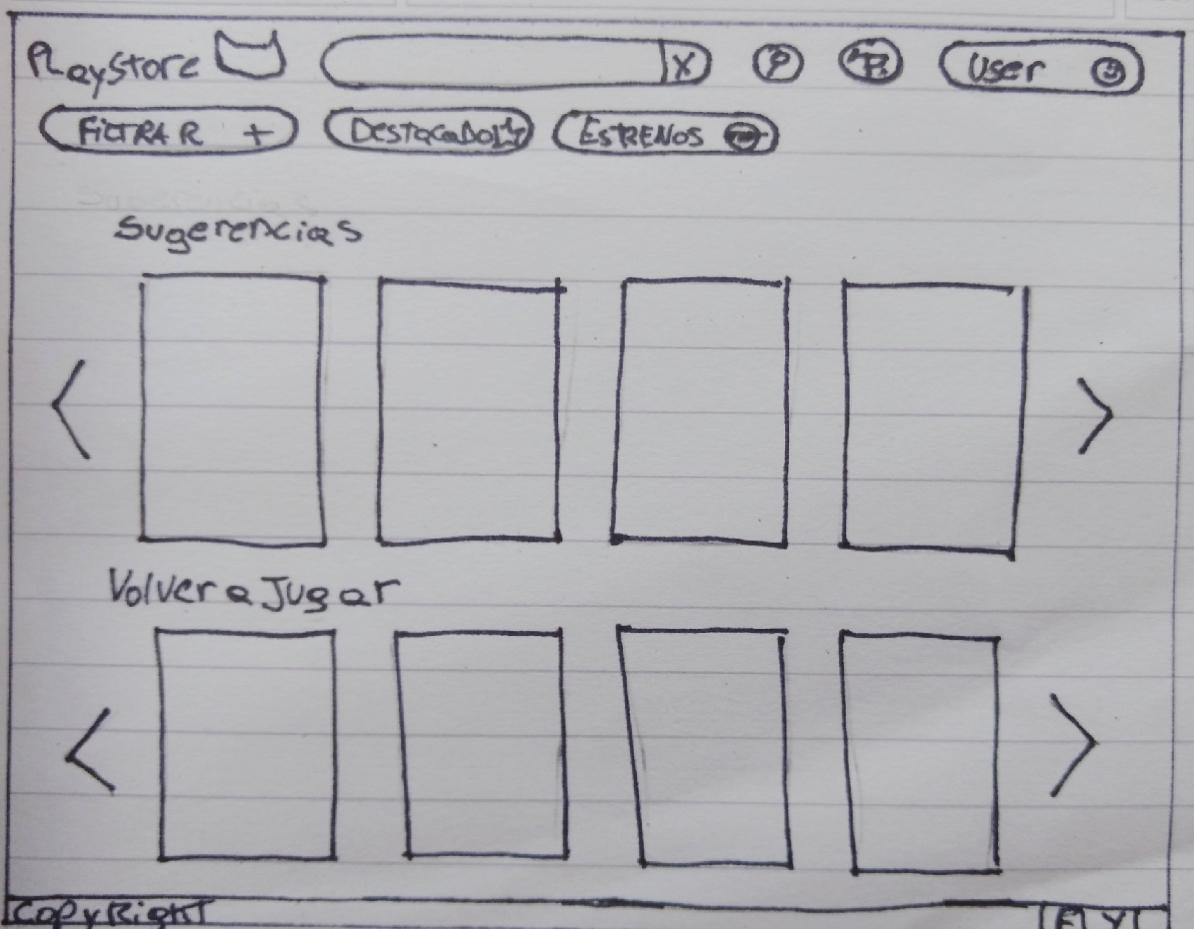 PLayStore X User
FiLTRAR + DestacadoS ESTRENOS
Sugerencias
Volver a Jugar
CoPyRighT F Y